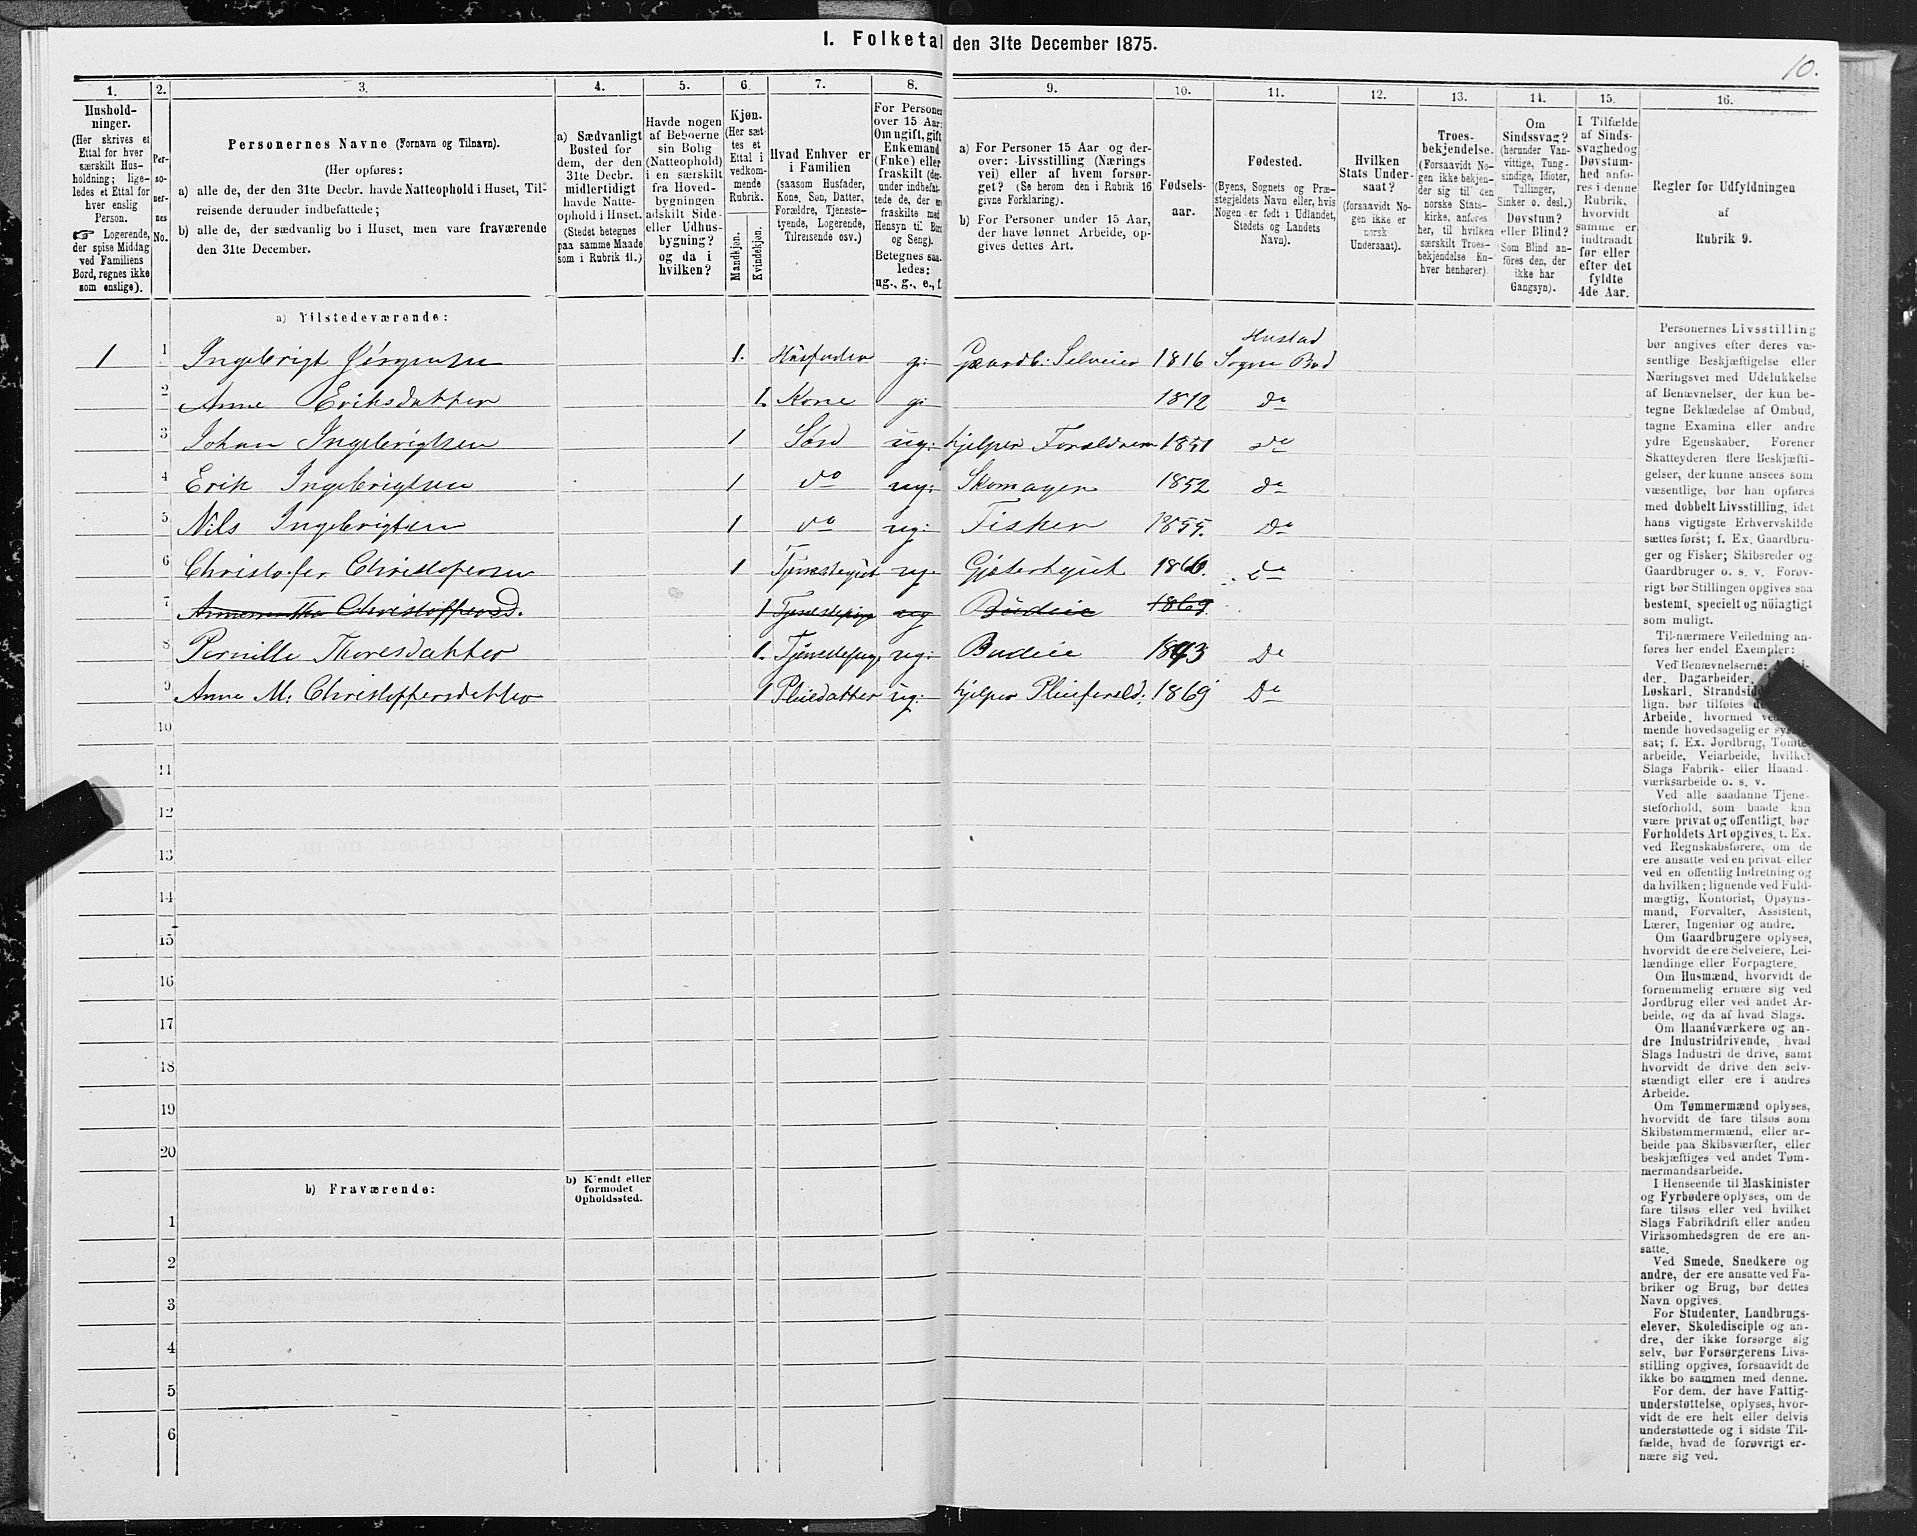 I. Folketal den 31te December 1875.
10.
1.
Hushold-
ninger.
(Her skrives et
Ettal for hver
særskilt Hus-
holdning; lige-
ledes et Ettal for
hver enslig
Person.
☞ Logerende,
der spise Middag
ved Familiens
Bord, regnes ikke
som enslige).
2.
Per-
so-
ner-
nes
No.
3.
Personernes Navne (Fornavn og Tilnavn).
(Her opføres:
a) alle de, der den 31te Decbr. havde Natteophold i Huset, Til-
reisende derunder indbefattede;
b) alle de, der sædvanlig bo i Huset, men vare fraværende
den 31te December.
4.
a) Sædvanligt
Bosted for
dem, der den
31te Decbr.
midlertidigt
havde Natte-
ophold i Huset.
(Stedet betegnes
paa samme Maade
som i Rubrik 11.)
5.
Havde nogen
af Beboerne
sin Bolig
(Natteophold)
i en særskilt
fra Hoved-
bygningen
adskilt Side-
eller Udhus-
bygning?
og da i
hvilken?
6.
Kjøn.
(Her sæt-
tes et
Ettal i
vedkom-
mende
Rubrik.
Mandkjøn.
Kvindekjøn.
7.
Hvad Enhver er
i Familien
(saasom Husfader,
Kone, Søn, Datter,
Forældre, Tjeneste-
tyende, Logerende,
Tilreisende osv.)
8.
For Personer
over 15 Aar:
Om ugift, gift,
Enkemand
(Enke) eller
fraskilt (der-
under indbefat-
tede de, der ere
fraskilte med
Hensyn til Bord
og Seng).
Betegnes saa-
ledes:
ug., g., e., f.
9.
a) For Personer 15 Aar og der-
over: Livsstilling (Nærings-
vei) eller af hvem forsør-
get? (Se herom den i Rubrik 16
givne Forklaring).
b) For Personer under 15 Aar,
der have lønnet Arbeide, op-
gives dettes Art.
10.
Fødsels-
aar.
11.
Fødested.
(Byens, Sognets og Præ-
stegjeldets Navn eller, hvis
Nogen er født i Udlandet,
Stedets og Landets
Navn).
12.
Hvilken
Stats Under-
saat?
(forsaavidt No-
gen ikke er
norsk
Undersaat).
13.
Troes-
bekjendelse.
(Forsaavidt No-
gen ikke bekjen-
der sig til den
norske Stats-
kirke, anføres
her, til hvilken
særskilt Troes-
bekjendelse En-
hver henhører).
14.
Om
Sindssvag?
(herunder Van-
vittige, Tung-
sindige, Idioter,
Tullinger,
Sinker o. desl.)
Døvstum?
eller Blind?
(Som Blind an-
føres den, der
ikke har
Gangsyn).
15.
I Tilfælde
af Sinds-
svaghed og
Døvstum-
hed anfø-
res i denne
Rubrik,
hvorvidt
samme er
indtraadt
før eller
efter det
fyldte
4de Aar.
16.
Regler før Udfyldningen
af
Rubrik 9.
a) Tilstedeværende:
1 1 Ingebrigt Jørgensen 1. Husfader g: Gaardb: Selveier 1816 Hustad
Sogn Bod
2 Anne Eriksdatter 1. Kone g: 1812 Do
3 Johan Ingebrigtsen 1 Søn ug: hjelper Forældrene 1851 do
4 Erik Ingebrigtsen 1 do ug: Skomager 1852 do
5 Nils Ingebrigtsen 1 do ug: Fisker 1855. Do
6 Christofer Christofersen 1 Tjenestegut ug. Gjætergut 1860. Do
7 Christoffersd. 1 Tjenestepige ug Budeie 1869
8 Pernille Thoresdatter 1. Tjenestepige ug: Budeie 1843 Do
9 Anne M. Christoffersdatter 1 Pleiedatter ug: hjelper Pleieforeld: 1869 Do
10
11
12
13
14
15
16
17
18
19
20
b) Fraværende:
b) Kjendt eller
formodet
Opholdssted.
1
2
3
4
5
6
Personernes Livsstilling
bør angives efter deres væ-
sentlige Beskjæftigelse eller
Næringsvei med Udelukkelse
af Benævnelser, der kun be-
tegne Beklædelse af Ombud,
tagne Examina eller andre
ydre Egenskaber. Forener
Skatteyderen flere Beskjæfti-
gelser, der kunne ansees som
væsentlige, bør han opføres
med dobbelt Livsstilling, idet
hans vigtigste Erhvervskilde
sættes først; f. Ex. Gaardbru-
ger og Fisker; Skibsreder og
Gaardbruger o. s. v. Forøv-
rigt bør Stillingen opgives saa
bestemt, specielt og nøiagtigt
som muligt.
Til nærmere Veiledning an-
føres her endel Exempler:
Ved Benævnelserne:
der, Dagarbeider,
Løskarl, Strandsid
lign. bør tilføies
Arbeide, hvormed ved
mende hovedsagelig er syssel
sat; f. Ex. Jordbrug, Tomte-
arbeide, Veiarbeide, hvilket
Slags Fabrik- eller Haand-
værksarbeide o. s. v.
Ved alle saadanne Tjene-
steforhold, som baade kan
være privat og offentligt, bør
Forholdets Art opgives, t. Ex.
ved Regnskabsførere, om de
ere ansatte ved en privat eller
ved en offentlig Indretning og
da hvilken; lignende ved Fuld-
mægtig, Kontorist, Opsyns-
mand, Forvalter, Assistent,
Lærer, Ingeniør og andre.
Om Gaardbrugere oplyses,
hvorvidt de ere Selveiere, Lei-
lændinge eller Forpagtere.
Om Husmænd, hvorvidt de
fornemmelig ernære sig ved
Jordbrug eller ved andet Ar-
beide, og da af hvad Slags.
Om Haandværkere og an-
dre Industridrivende, hvad
Slags Industri de drive, samt
hvorvidt de drive den selv-
stændigt eller ere i andres
Arbeide.
Om Tømmermænd oplyses,
hvorvidt de fare tilsøs som
Skibstømmermænd, eller ar-
beide paa Skibsværfter, eller
beskjæftiges ved andet Tøm-
mermandsarbeide.
I Henseende til Maskinister
og Fyrbødere oplyses, om de
fare tilsøs eller ved hvilket
Slags Fabrikdrift eller anden
Virksomhedsgren de ere an-
satte.
Ved Smede, Snedkere og
andre, der ere ansatte ved Fa-
briker og Brug, bør dettes
Navn opgives.
For Studenter, Landbrugs-
elever, Skoledisciple og an-
dre, der ikke forsørge sig
selv, bør Forsørgerens Livs-
stilling opgives, forsaavidt de
ikke bo sammen med denne.
For dem, der have Fattig-
understøttelse, oplyses, hvor-
vidt de ere helt eller delvis
understøttede og i sidste Til-
fælde, hvad de forøvrigt er-
nære sig ved.